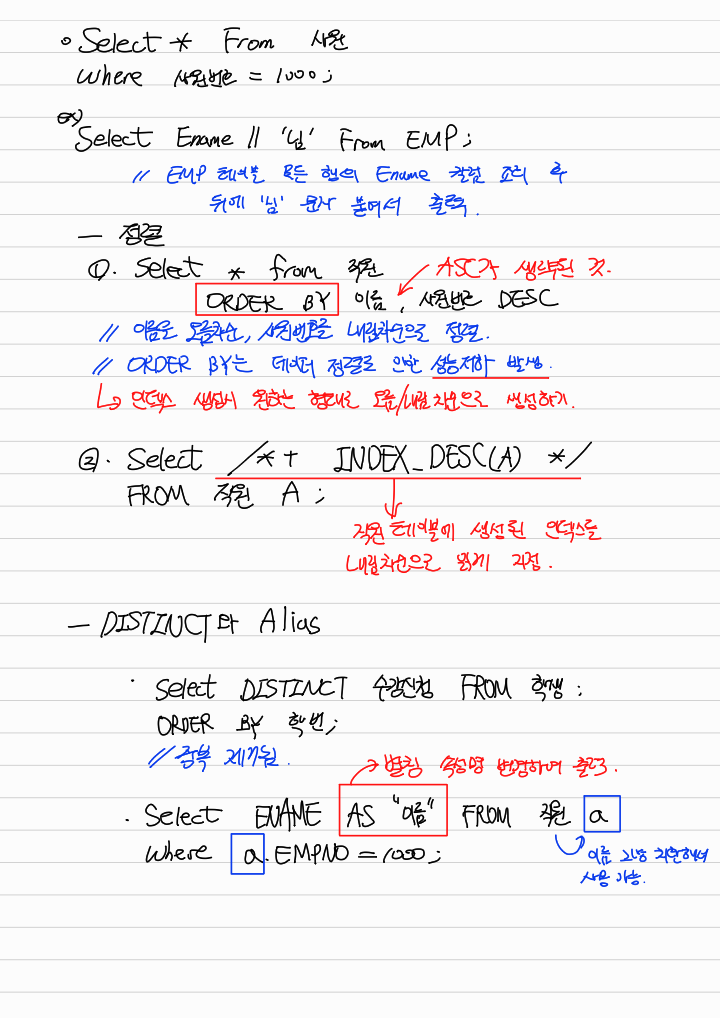 ∘ Select * From 사원
where 사원번호 = 1000;
ex)
Select Ename || '님' From EMP;
// EMP 테이블 모든 행의 Ename 칼럼 조회 후
뒤에 '님' 문자 붙여서 출력.
— 정렬
①. Select * from 직원
ASC가 생략된 것.
ORDER BY 이름, 사원번호 DESC
// 이름은 오름차순, 사원번호를 내림차순으로 정렬.
// ORDER BY는 데이터 정렬로 인한 성능저하 발생.
↳ 인덱스 생성시 원하는 형태로 오름/내림차순으로 생성하기.
②. Select /*+ INDEX_DESC(A) */
FROM 직원 A ;
직원 테이블에 생성된 인덱스를
내림차순으로 읽게 지정.
— DISTINCT와 Alias
· Select DISTINCT 수강신청 FROM 학생;
ORDER BY 학번;
// 중복 제거됨.
→ 별칭 속성명 변경하여 출력.
· Select ENAME AS "이름" FROM 직원 a
where a.EMPNO = 1000;
이름 그냥 치환해서
사용 가능.